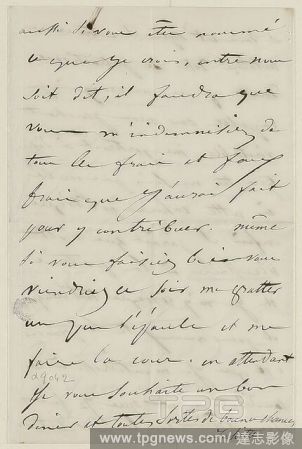 aussi si vous êtes nommé
ce que je crois, entre nous
soit dit, il faudra que
vous m'indemnisiez de
tous les frais et faux
frais que j'aurai fait
pour y contribuer. même
si vous faisiez bien vous
viendriez ce soir me gratter
un peu l'épaule et me
faire la cour. en attendant
je vous souhaite un bon
diner et toutes sortes de bonnes chances
a9042
TPG
www.tpgnews.com / 達志影像